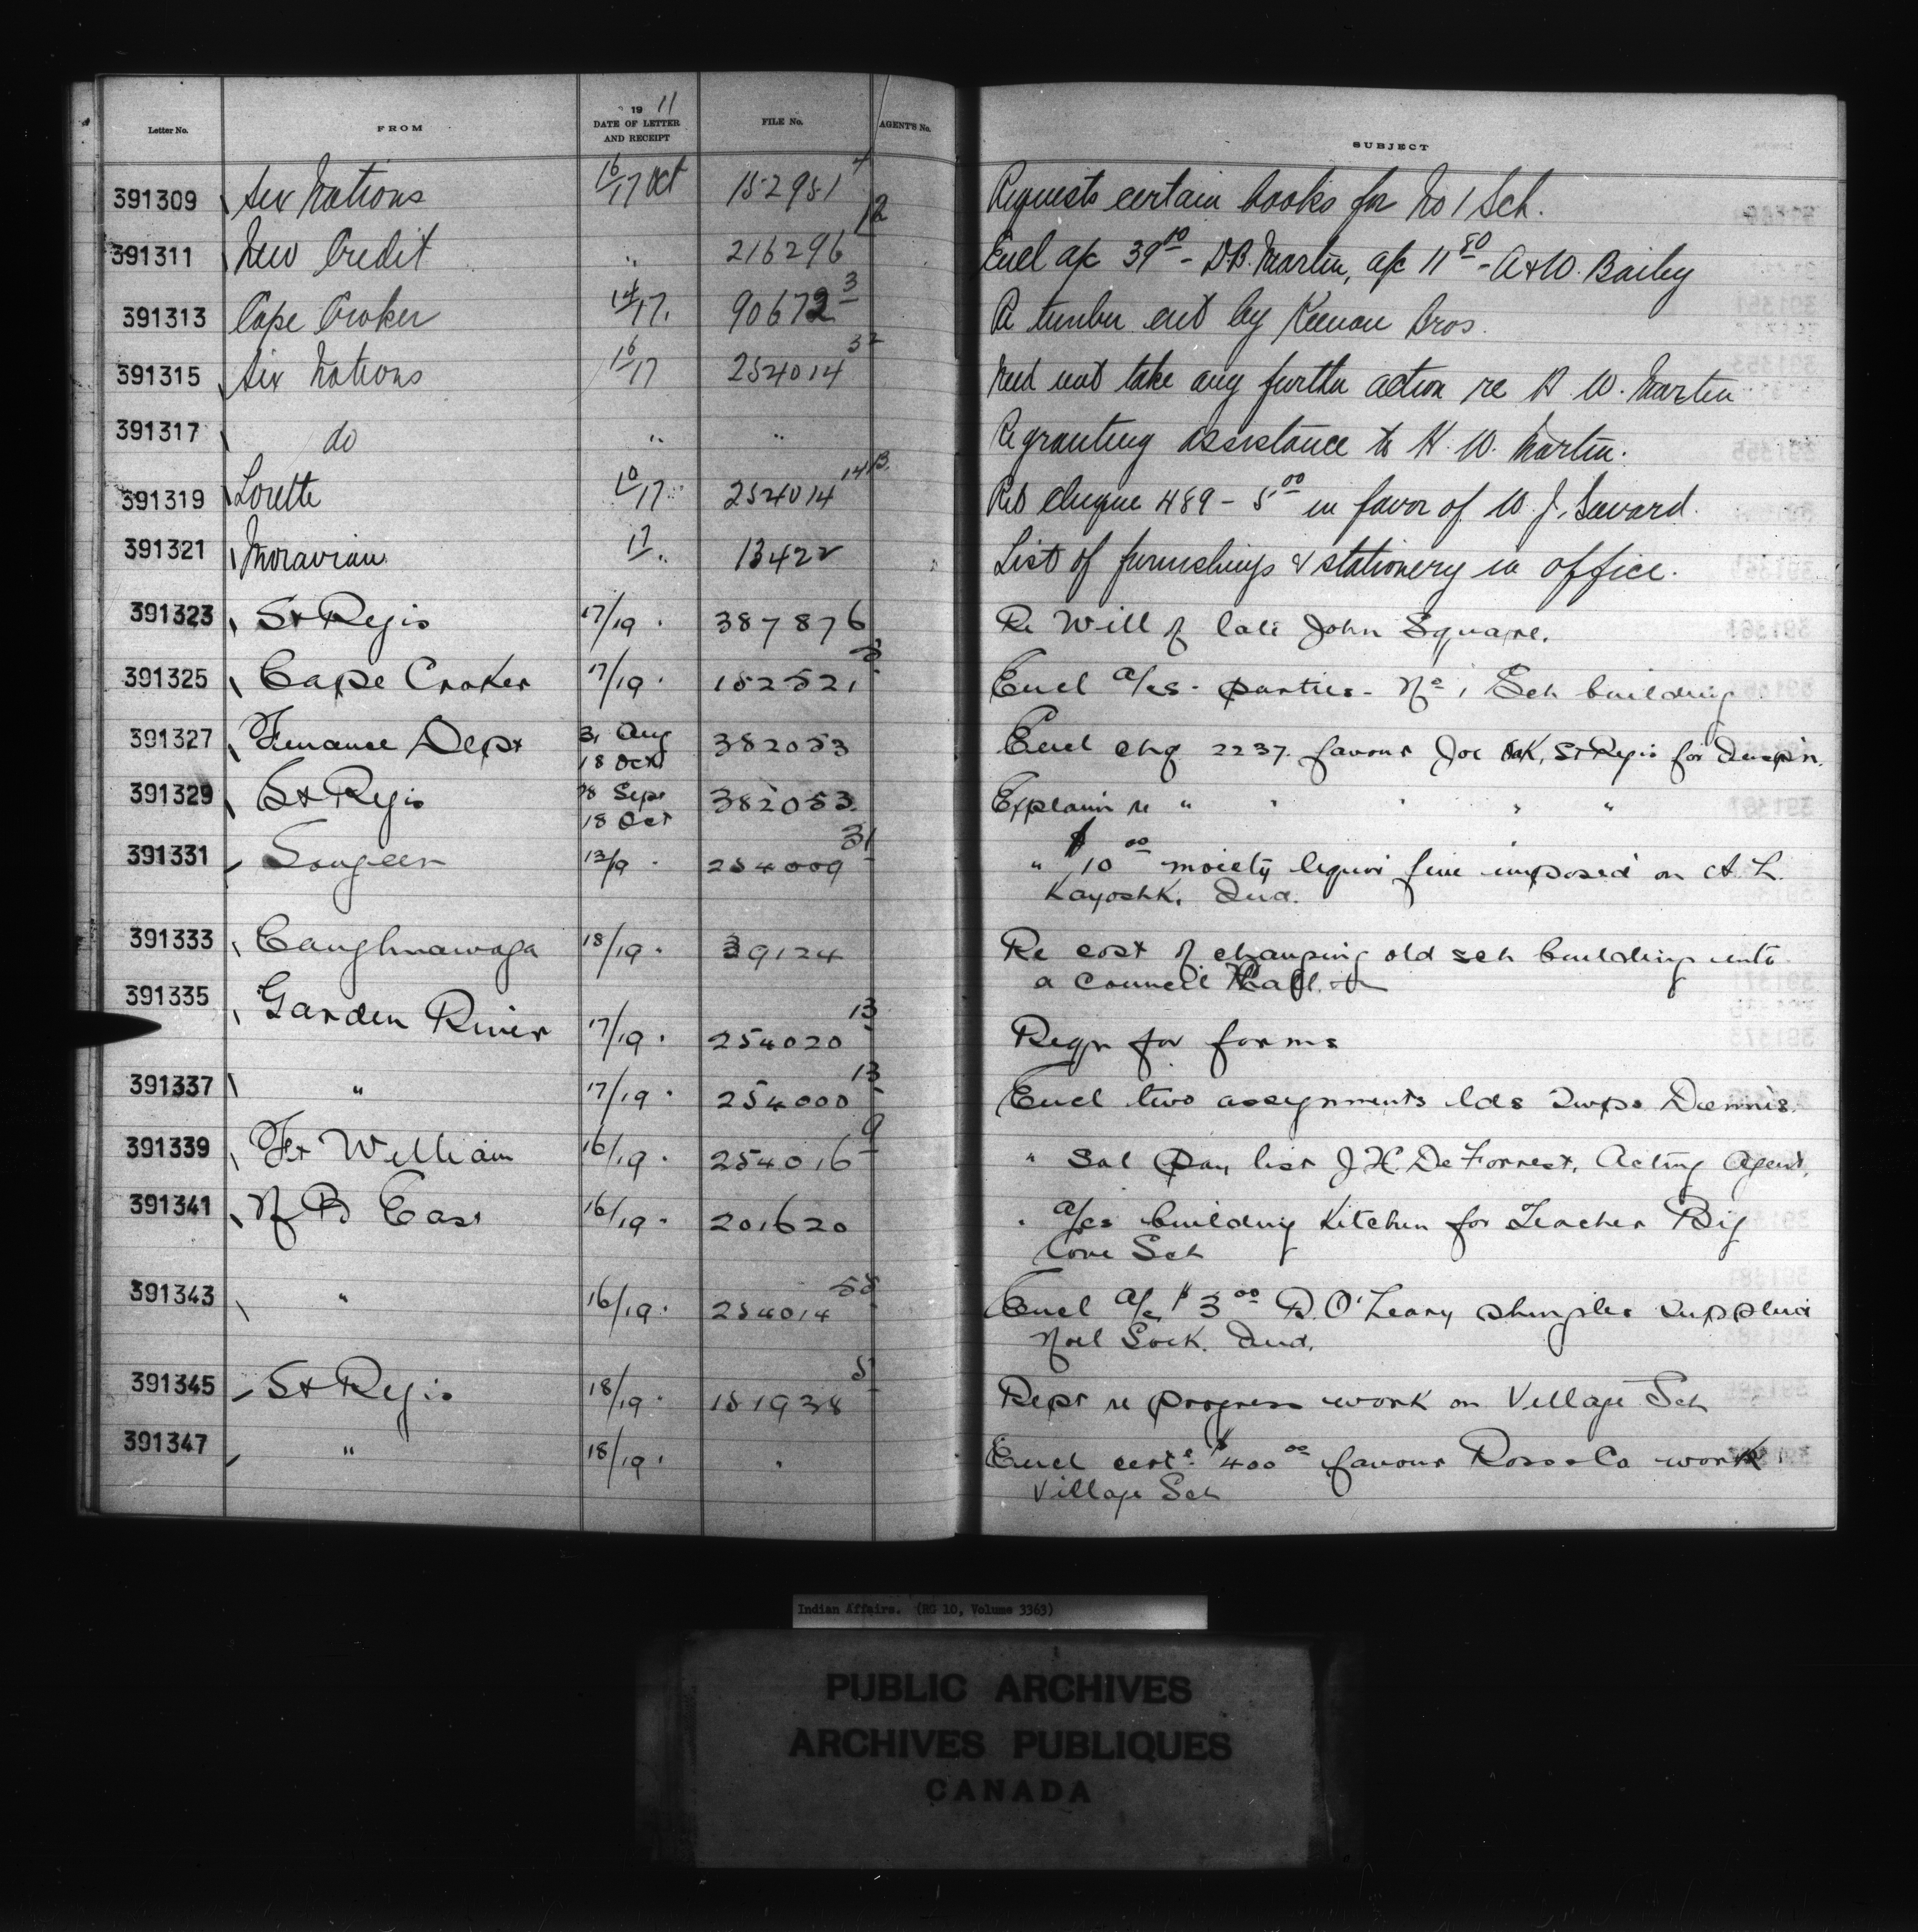 Letter No. FROM 1911 DATE OF LETTER AND RECEIPT FILE No. AGENT'S No. SUBJECT
391309 Six Nations 16/17 Oct 152951 4 Requests certain books for No 1 Sch.
391311 New Credit " 216296 12 Encl a/c 39 10 - D.B. Martin, a/c 11 50 - A & W. Bailey
391313 Cape Croker 14/17. 90672 3 Re timber cut by Keenan Bros.
391315 Six Nations 16/17 254014 32 Need not take any further action re H. W. Martin
391317 do " " Re granting assistance to H. W. Martin.
391319 Lorette 10/17 254014 14B. Retd cheque 489 - 5 00 in favor of W. J.
391321 Moravian 17. 13422 List of furnishings & stationery in office.
391323 St Regis 17/19 . 387876 Re Will of late John Square.
391325 Cape Croker 17/19 . 152521 Encl a/cs - parties - No 1 Sch building
391327 Finance Dept 31 Aug 18 Oct 382053 Encl chq 2237. favour Joe Oak, St Regis for Inspn.
391329 St Regis 28 Sept 18 Oct 382053. Explain re " " " " "
391331 Saugeen 13/19 . 254009 31 " $10 00 moiety liquor fine imposed on A. L.
Kayoshk, Ind.
391333 Caughnawaga 18/19 . 39124 Re cost of changing old sch building into
a Council Hall.
391335 Garden River 17/19 . 254020 13 Reqn for forms
391337 " 17/19 . 254000 13 Encl two assignments lds Twps Dennis.
391339 Ft William 16/19 . 254016 9 " Sal Pay list J. H. De Forrest, Acting Agent.
391341 N B East 16/19 . 201620 " a/cs building Kitchen for Teacher Big
Cove Sch
391343 " 16/19 . 254014 55 Encl a/c $3 00 R. O'Leary shingles supplied
Noel Sock. Ind.
391345 St Regis 18/19 . 151938 5 Rept re progress work on Village Sch
391347 " 18/19 . " Encl certe. $400 00 favour Ross & Co work
Village Sch
Indian Affairs. (RG 10, Volume 3363)
PUBLIC ARCHIVES
ARCHIVES PUBLIQUES
CANADA